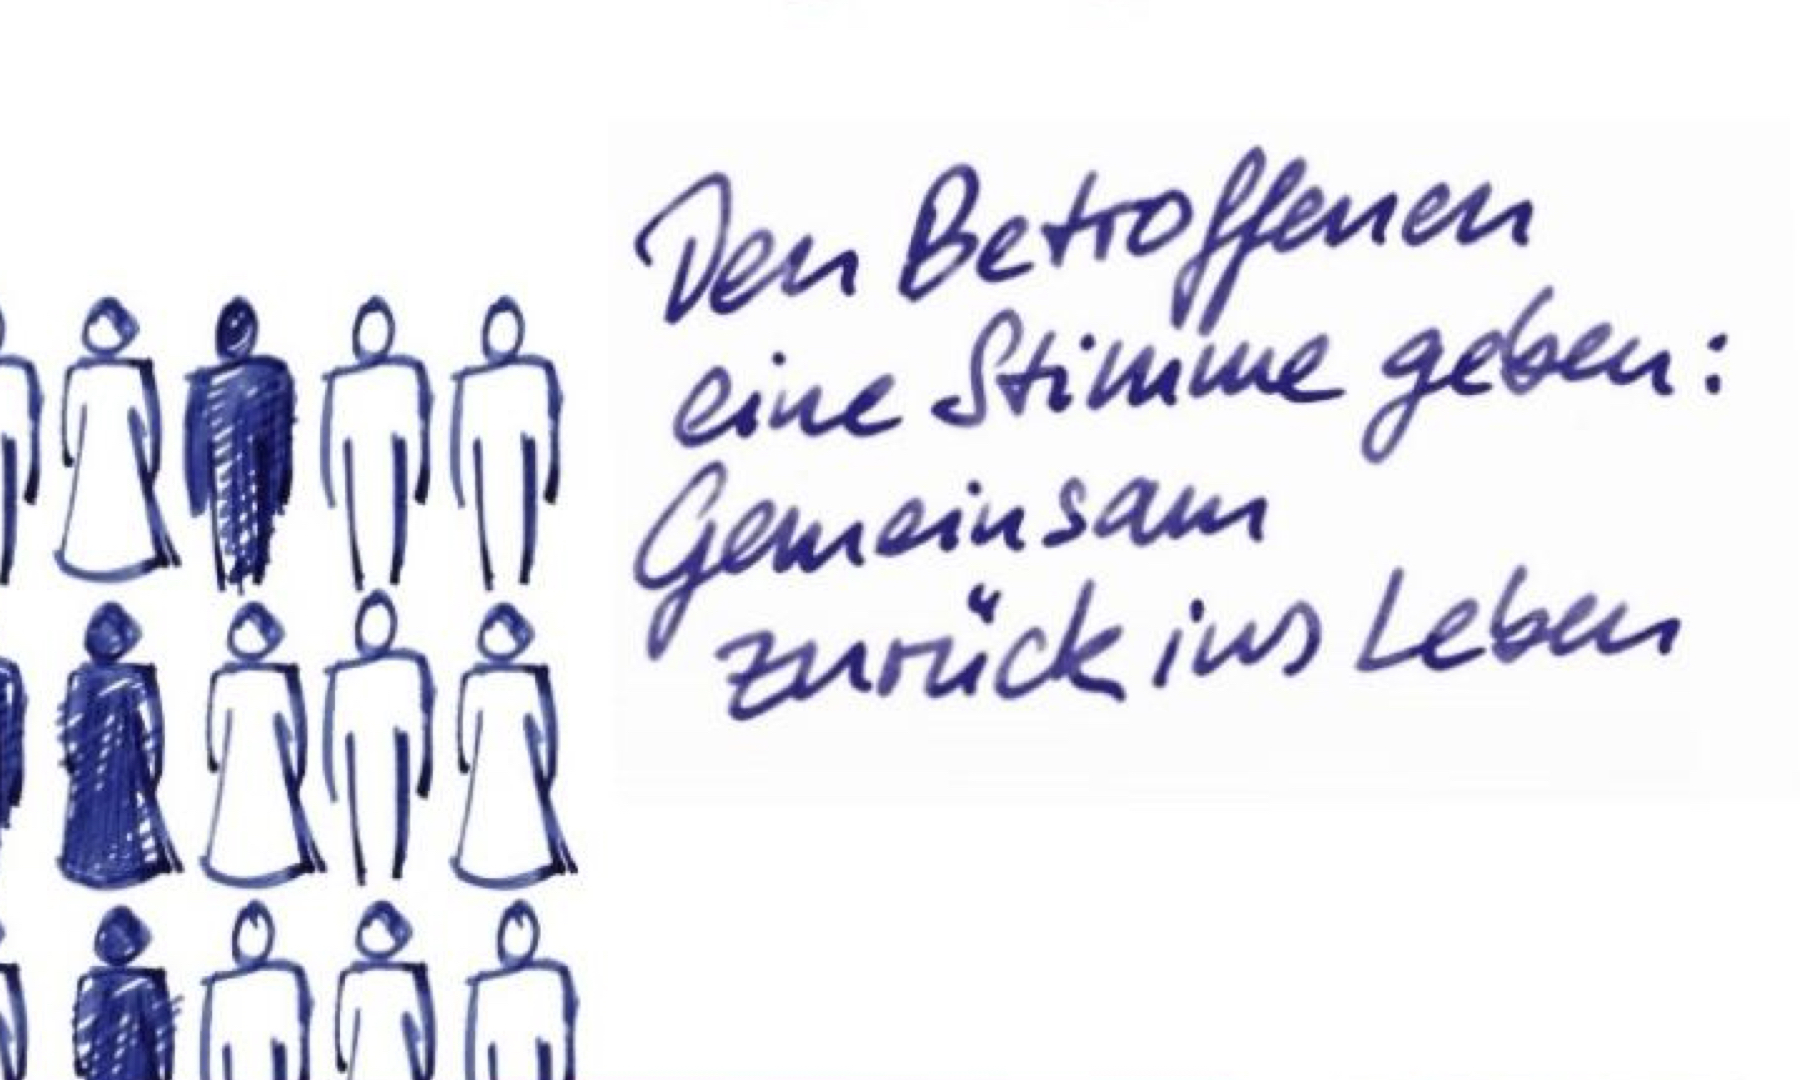 Den Betroffenen
eine Stimme geben:
Gemeinsam
zurück ins Leben